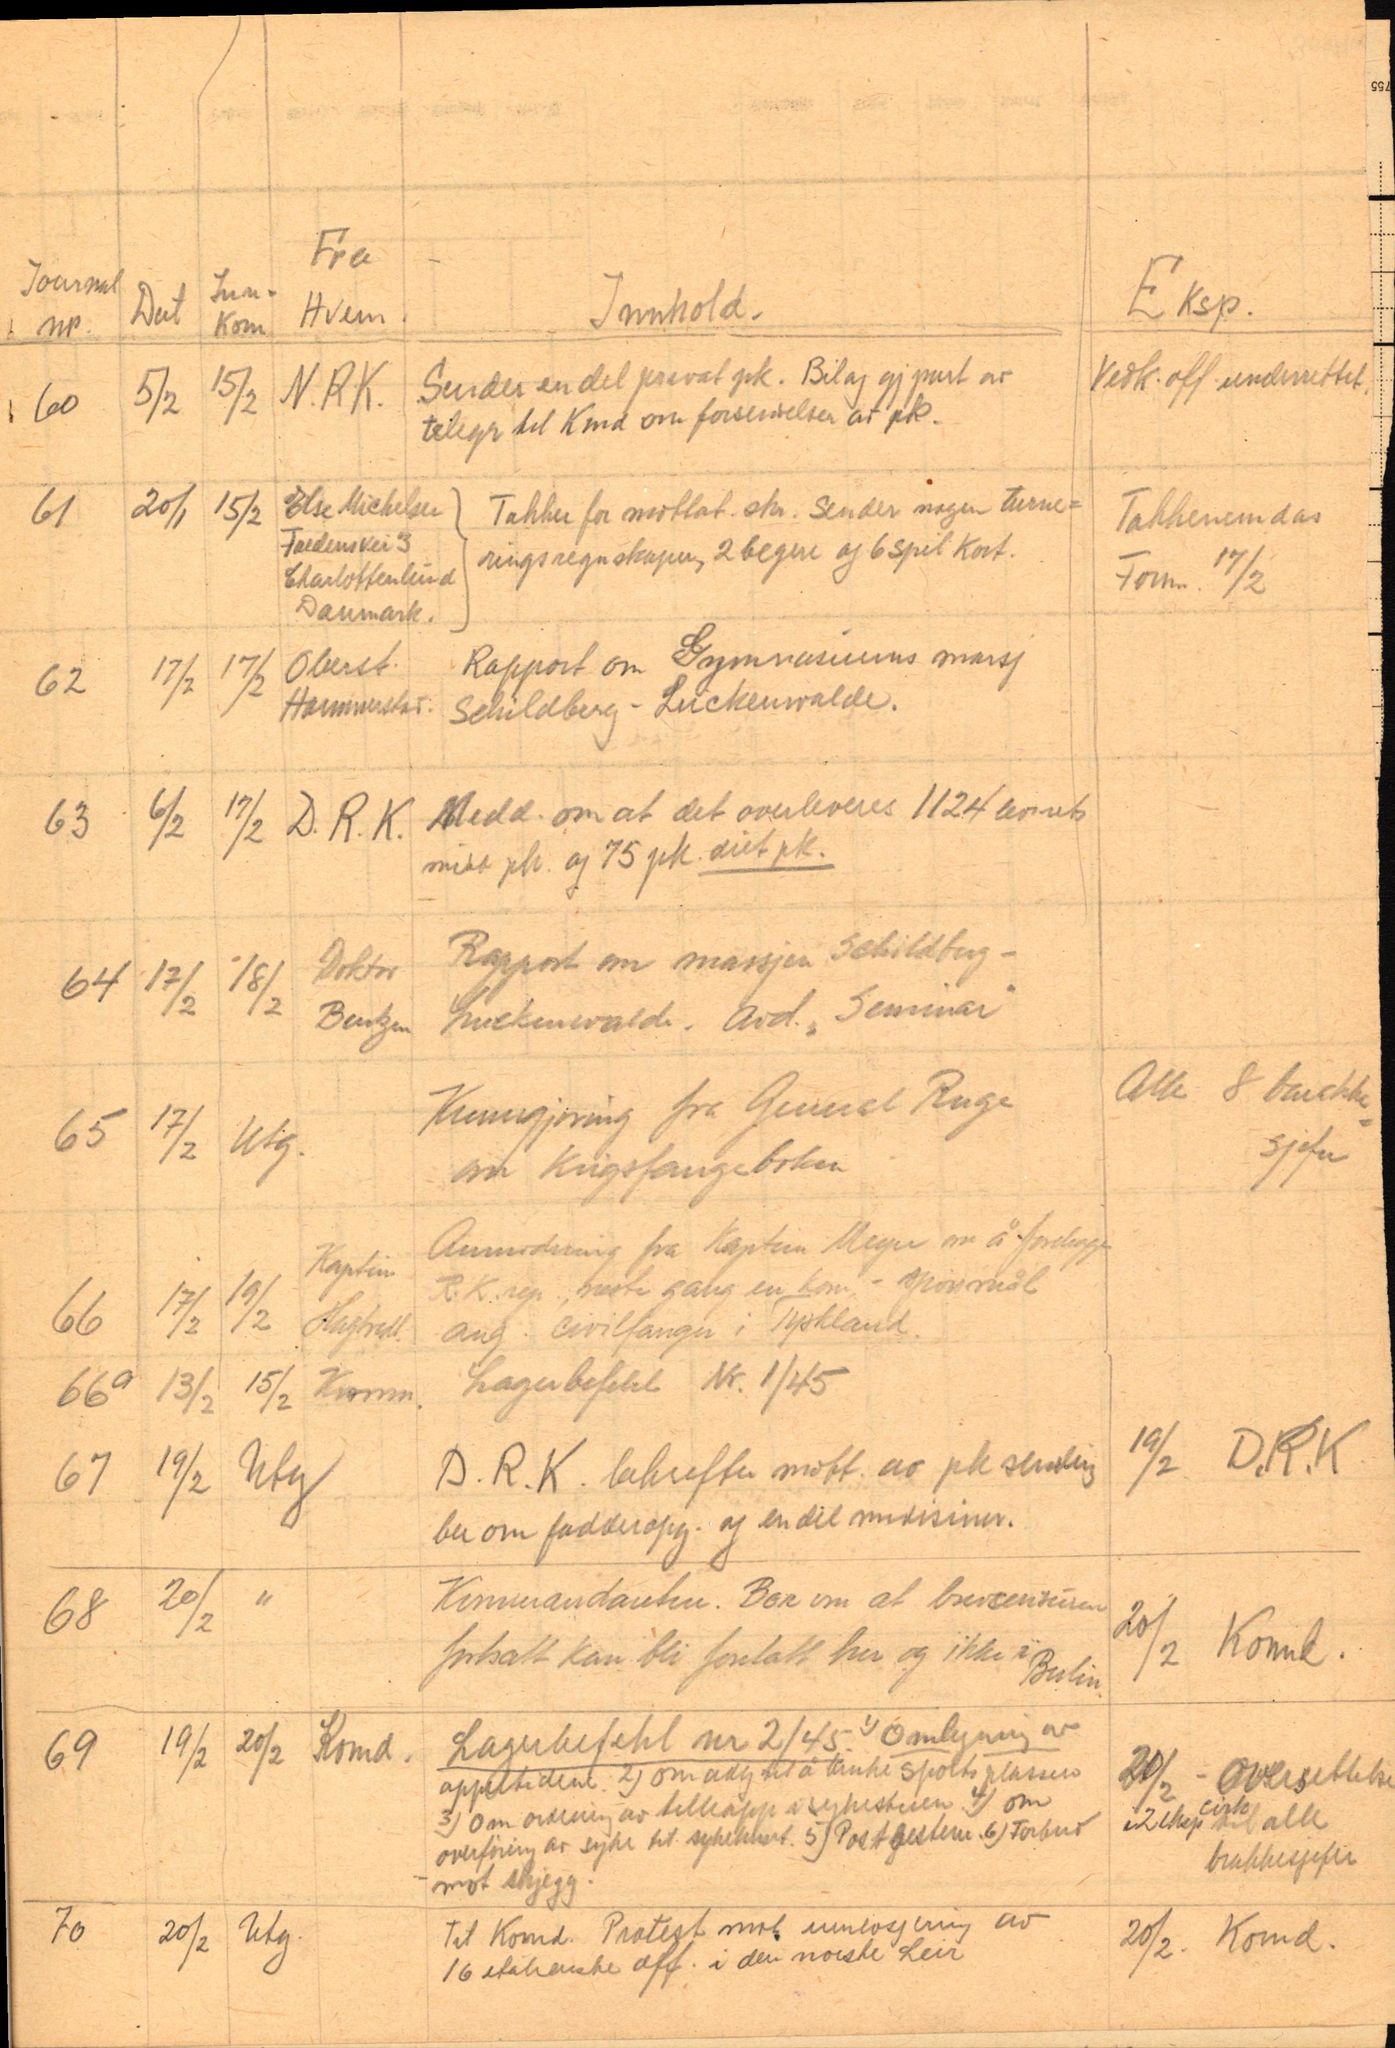 Journal nr. Dat Inn-kom Fra Hvem. Innhold. Eksp.
60 5/2 15/2 N.R.K. Sender en del privat pk. Bilag gjpart av Vedk. off. underrettet.
telegr til Kmd om forsendelser av pk.
61 20/1 15/2 Else Michelsen Takker for mottat. skr. Sender nogen turne= Takknemdas
Charlottenlund ringsregnskaper, 2 begere og 6 spil Kort. Form. 17/2
Danmark.
62 17/2 17/2 Oberst. Rapport om Gymnasiums marsj
Hammerstad. Schildberg - Luckenwalde.
63 6/2 17/2 D.R.K. Medd. om at det overleveres 1124
pk. og 75 pk. diet pk.
64 17/2 18/2 Doktor Rapport om marsjen Schildberg -
Bentzen Luckenwalde. Avd. „Seminar"
65 17/2 Utg. Kunngjøring fra General Ruge Alle 8 barakke=
om Krigsfangeboken sjefer
66 17/2 19/2 Kaptein Anmodning fra Kaptein Meyer om å forelegge
R.K. rep., neste gang en kom - spørsmål
ang. civilfanger i Tyskland.
66a 13/2 15/2 Komm. Lagerbefehl Nr. 1/45
67 19/2 Utg D.R.K. bekrefter mott. av pk sending 19/2 D.R.K
ber om fadderopg. og en del medisiner.
68 20/2 " Kommandanten. Ber om at brevcensuren 20/2 Komd.
fortsatt kan bli foretatt her og ikke i Berlin.
69 19/2 20/2 Komd. Lagerbefehl nr 2/45. 1) Omlegning av 20/2 - oversettelse
appeltidene. 2) Om adg til å bruke sportsplassen i 2 eksp cirk til alle
3) Om ordning av telleapp i sykestuen 4) om brakkesjefer
overføring av syke til sykehuset. 5) Postgesteren. 6) Forbud
mot skjegg.
70 20/2 Utg. Til Komd. Protest mot innlosjering av 20/2. Komd.
16 italienske off. i den norske Leir